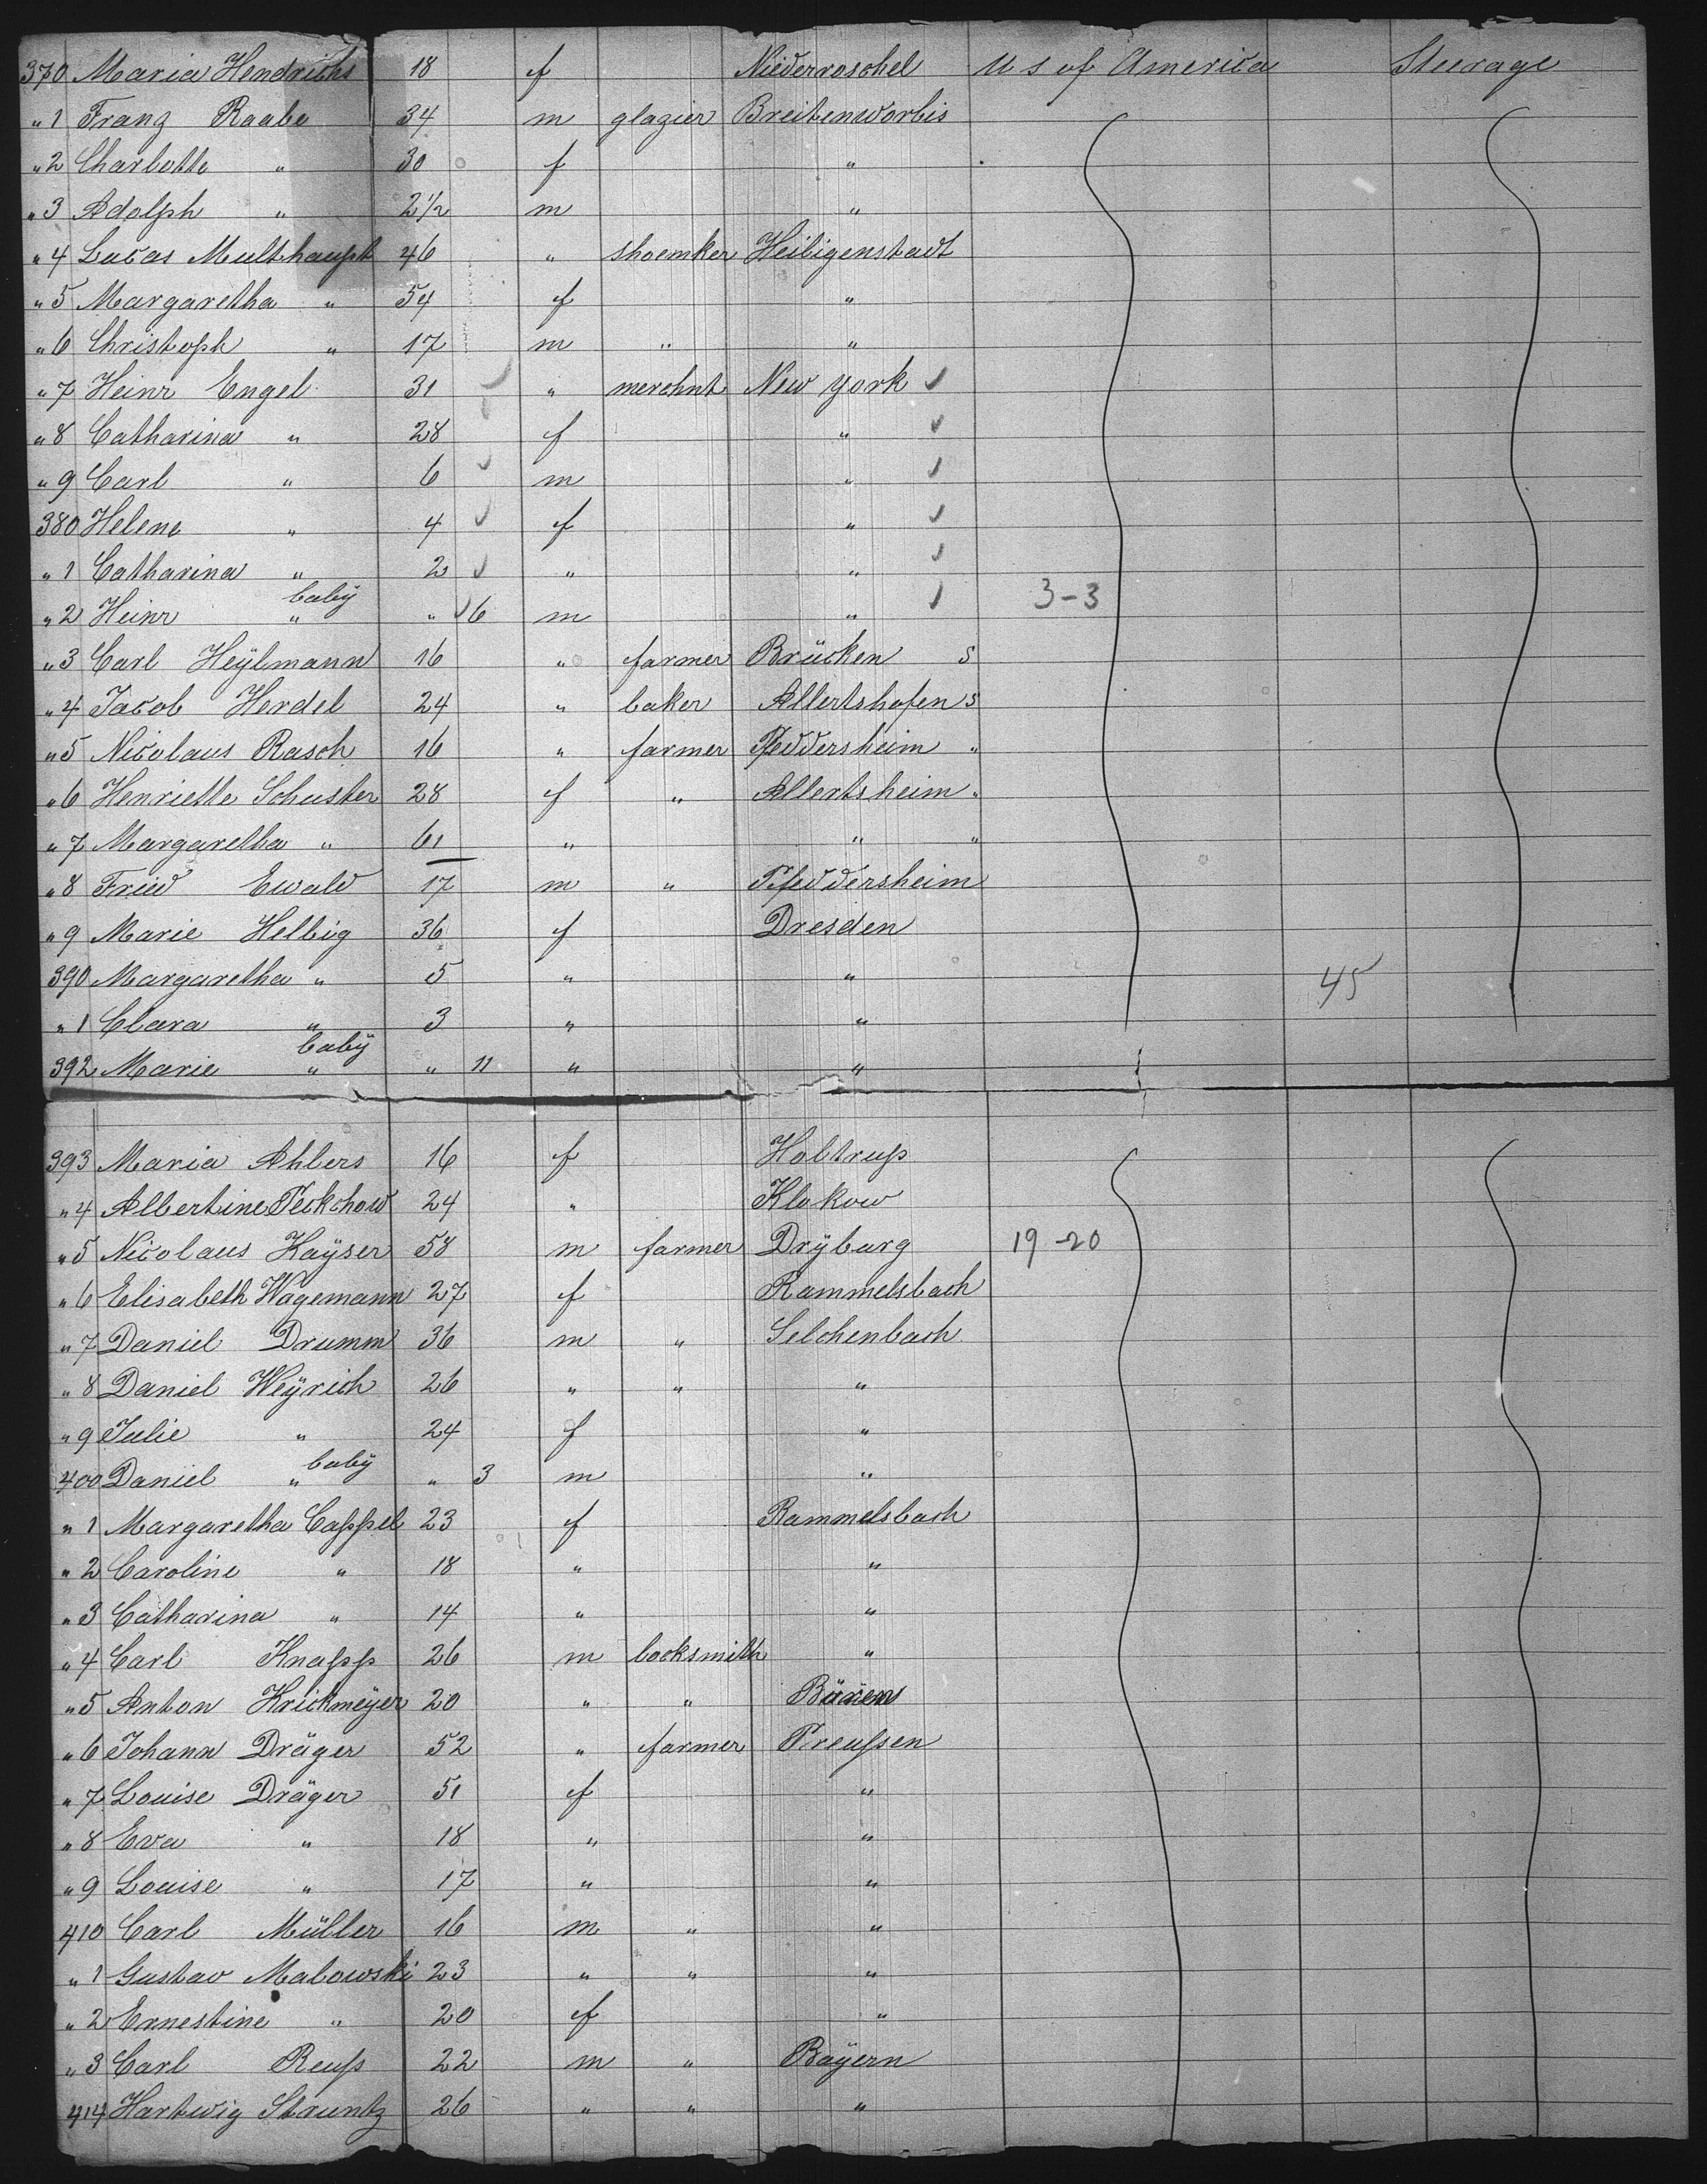 370 Maria Hendrichs 18 f Niederroschel U S of America Steerage
" 1 Franz Raabe 34 m glazier Breitenworbis
" 2 Charlotte " 30 f "
" 3 Adolph " 2½ m "
" 4 Lucas Multhaupt 46 " shoemker Heiligenstadt
" 5 Margaretha " 54 f "
" 6 Christoph " 17 m " "
" 7 Heinr Engel 31 " merchnt New York
" 8 Catharina " 28 f "
" 9 Carl " 6 m "
380 Helene " 4 f "
" 1 Catharina " 2 " "
" 2 Heinr " baby " 6 m " 3-3
" 3 Carl Heÿlmann 16 " farmer Brücken S
" 4 Jacob Herdel 24 " baker Allertshofen S
" 5 Nicolaus Rasch 16 " farmer Pfeddersheim "
" 6 Henriette Schuster 28 f " Allertsheim "
" 7 Margaretha " 61 " " "
" 8 Fried Ewald 17 m " Pfeddersheim
" 9 Marie Helbig 36 f Dresden
390 Margaretha " 5 " " 45
" 1 Clara " 3 " "
392 Marie " baby " 11 " "
393 Maria Ahlers 16 f Holtrup
" 4 Albertine Peckchow 24 " Klokow
" 5 Nicolaus Kaÿser 58 m farmer Drÿburg 19-20
" 6 Elisabeth Wagemann 27 f Rammelsbach
" 7 Daniel Drumm 36 m " Selchenbach
" 8 Daniel Weÿrich 26 " " "
" 9 Julie " 24 f "
400 Daniel " baby " 3 m "
" 1 Margaretha Cappel 23 f Rammelsbach
" 2 Caroline " 18 " "
" 3 Catharina " 14 " "
" 4 Carl Knapp 26 m locksmith "
" 5 Anton Krickmeÿer 20 " " Büren
" 6 Johann Dräger 52 " farmer Preußen
" 7 Louise Dräger 51 f "
" 8 Eva " 18 " "
" 9 Louise " 17 " "
410 Carl Müller 16 m " "
" 1 Gustav Malowski 23 " " "
" 2 Ernestine " 20 f "
" 3 Carl Reuß 22 m " Baÿern
414 Hartwig Struntz 26 " " "